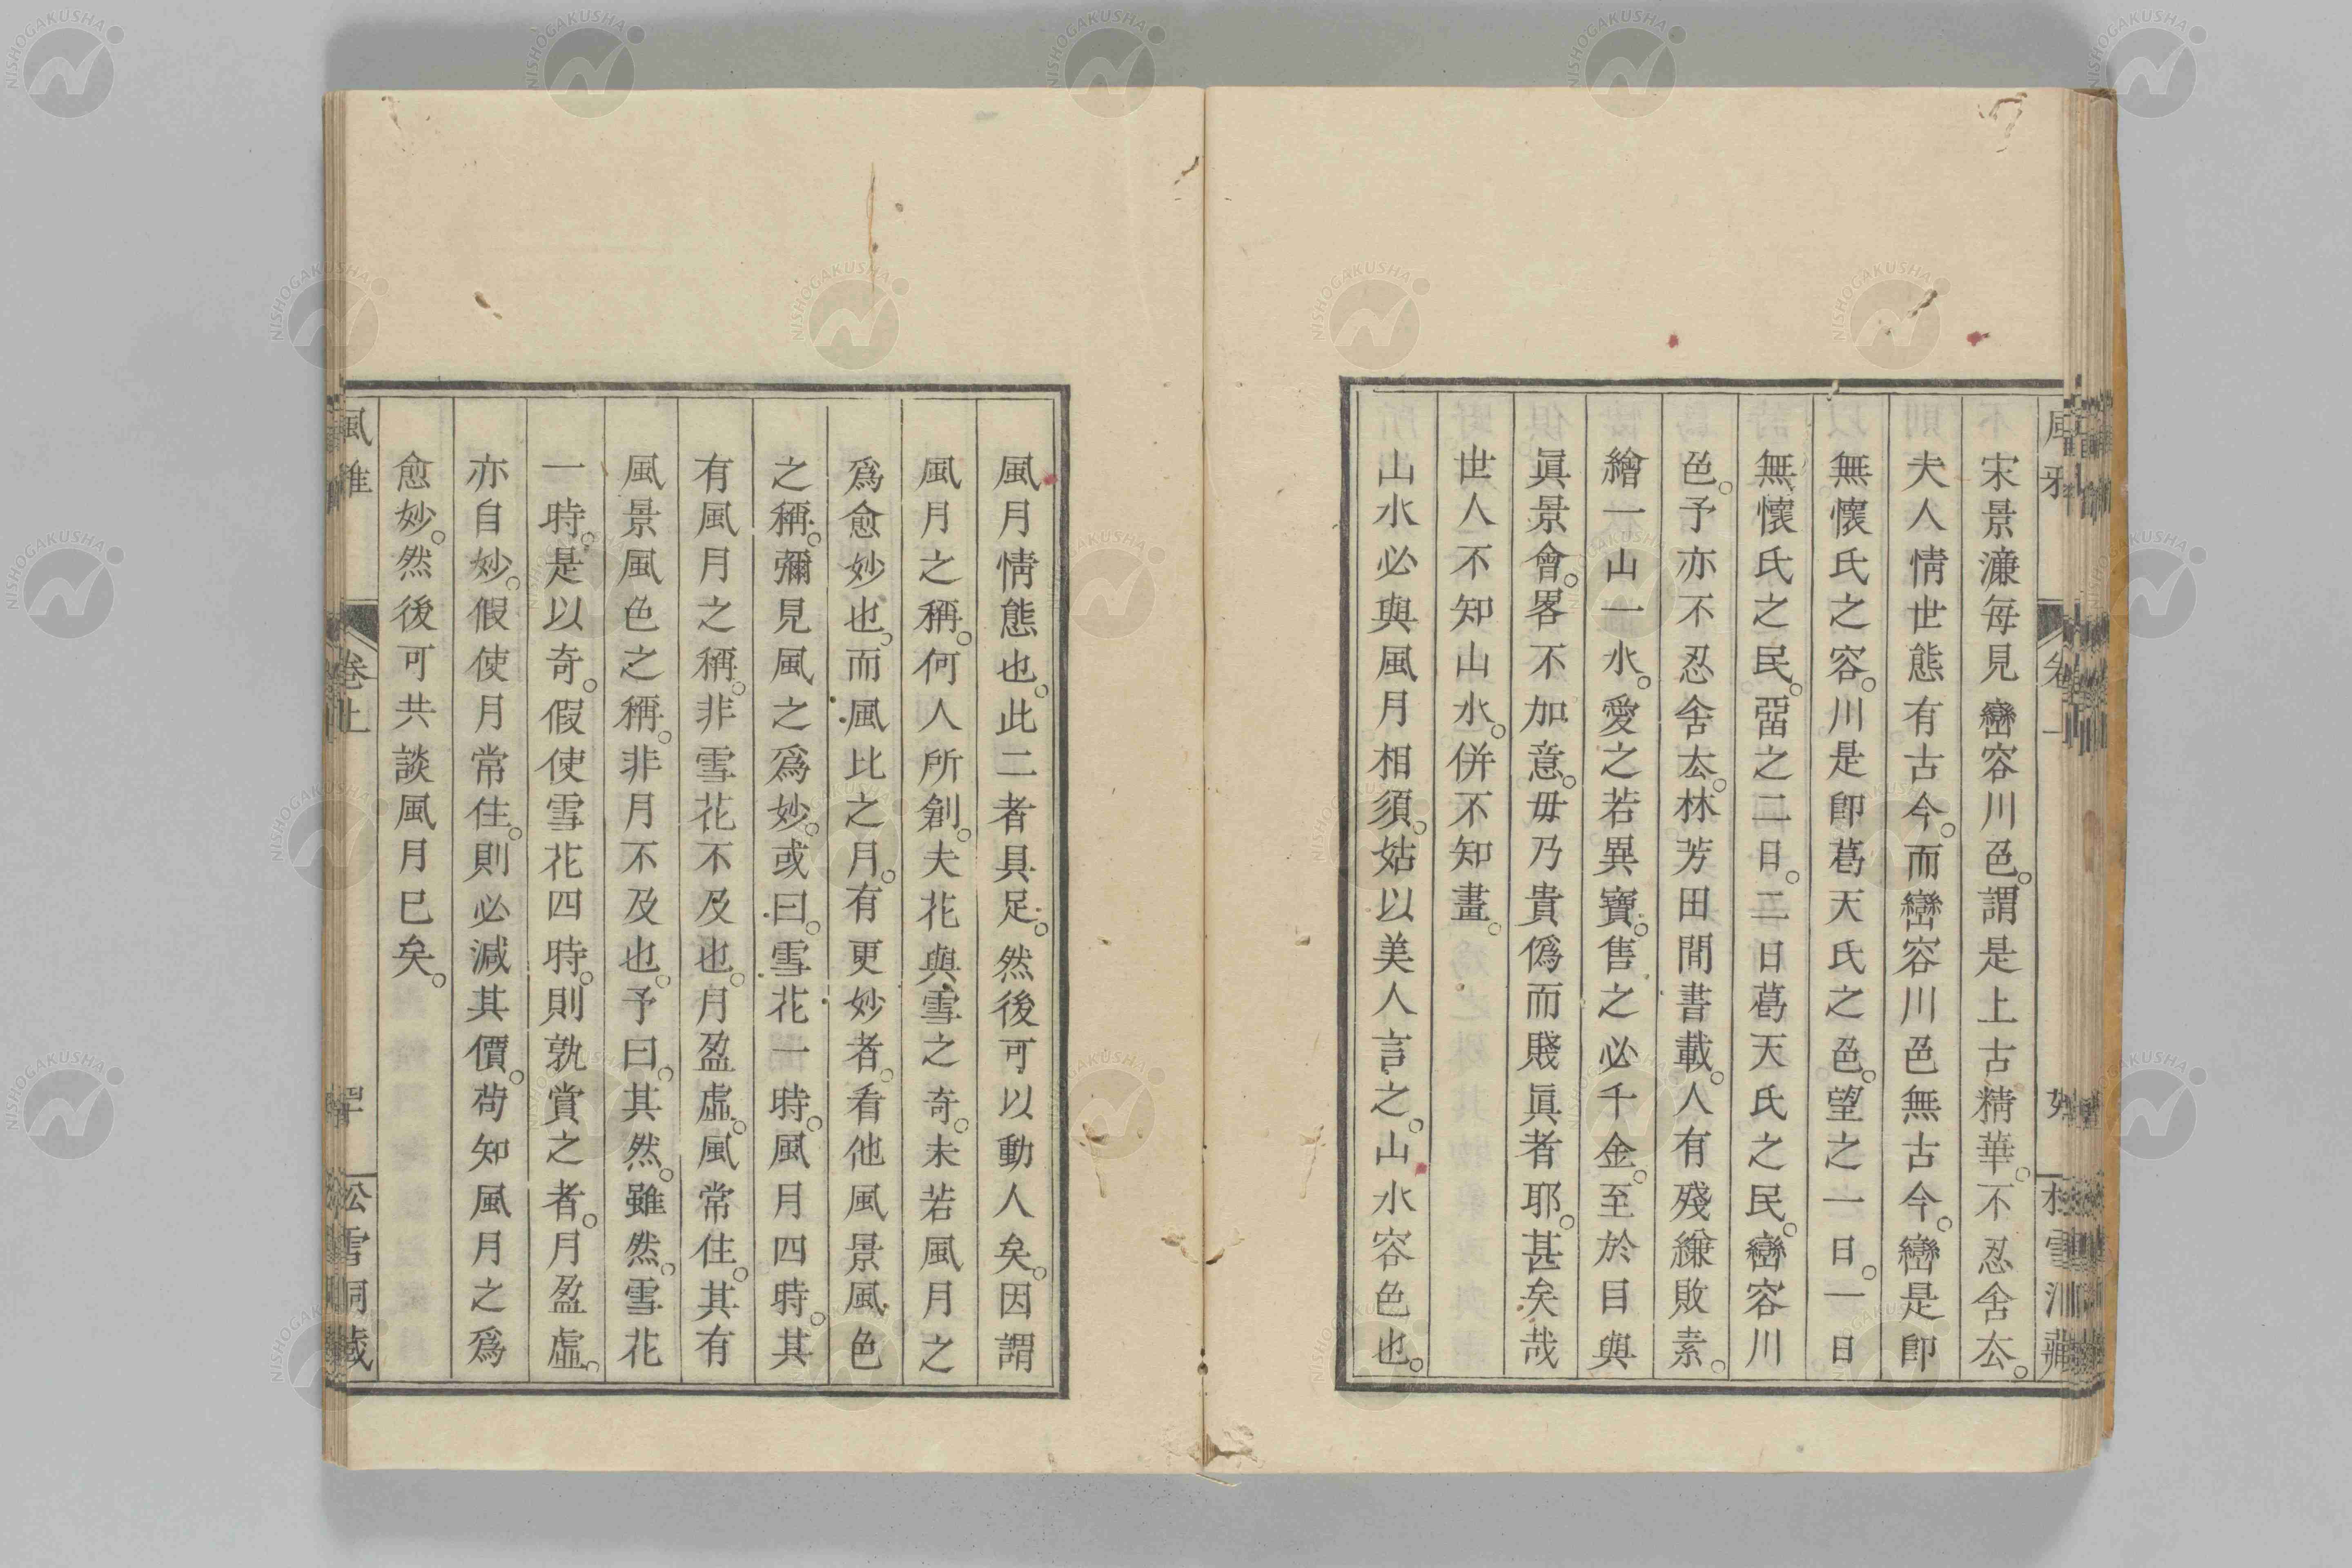 宋景濂每見巒容川色。謂是上古精華。不忍舍厺。
夫人情世態有古今。而巒容川色無古今。巒是卽
無懷氏之容。川是卽葛天氏之色。望之一日。一日
無懷氏之民。畱之二日。二日葛天氏之民。巒容川
色。予亦不忍舍厺。林芳田間書載。人有殘縑敗素。
繪一山一水。愛之若異寶。售之必千金。至於目與
眞景會。畧不加意。毋乃貴僞而賤眞者耶。甚矣哉
世人不知山水。併不知畫。
山水必與風月相須。姑以美人言之。山水容色也。
風月情態也。此二者具足。然後可以動人矣。因謂
風月之稱。何人所創。夫花與雪之奇。未若風月之
爲愈妙也。而風比之月。有更妙者。看他風景風色
之稱。彌見風之爲妙。或曰。雪花一時。風月四時。其
有風月之稱。非雪花不及也。月盈虛。風常住。其有
風景風色之稱。非月不及也。予曰。其然。雖然。雪花
一時。是以奇。假使雪花四時。則孰賞之者。月盈虛。
亦自妙。假使月常住。則必減其價。苟知風月之爲
愈妙。然後可共談風月巳矣。
風雅
卷上
松雪洞藏
NISHOGAKUSHA